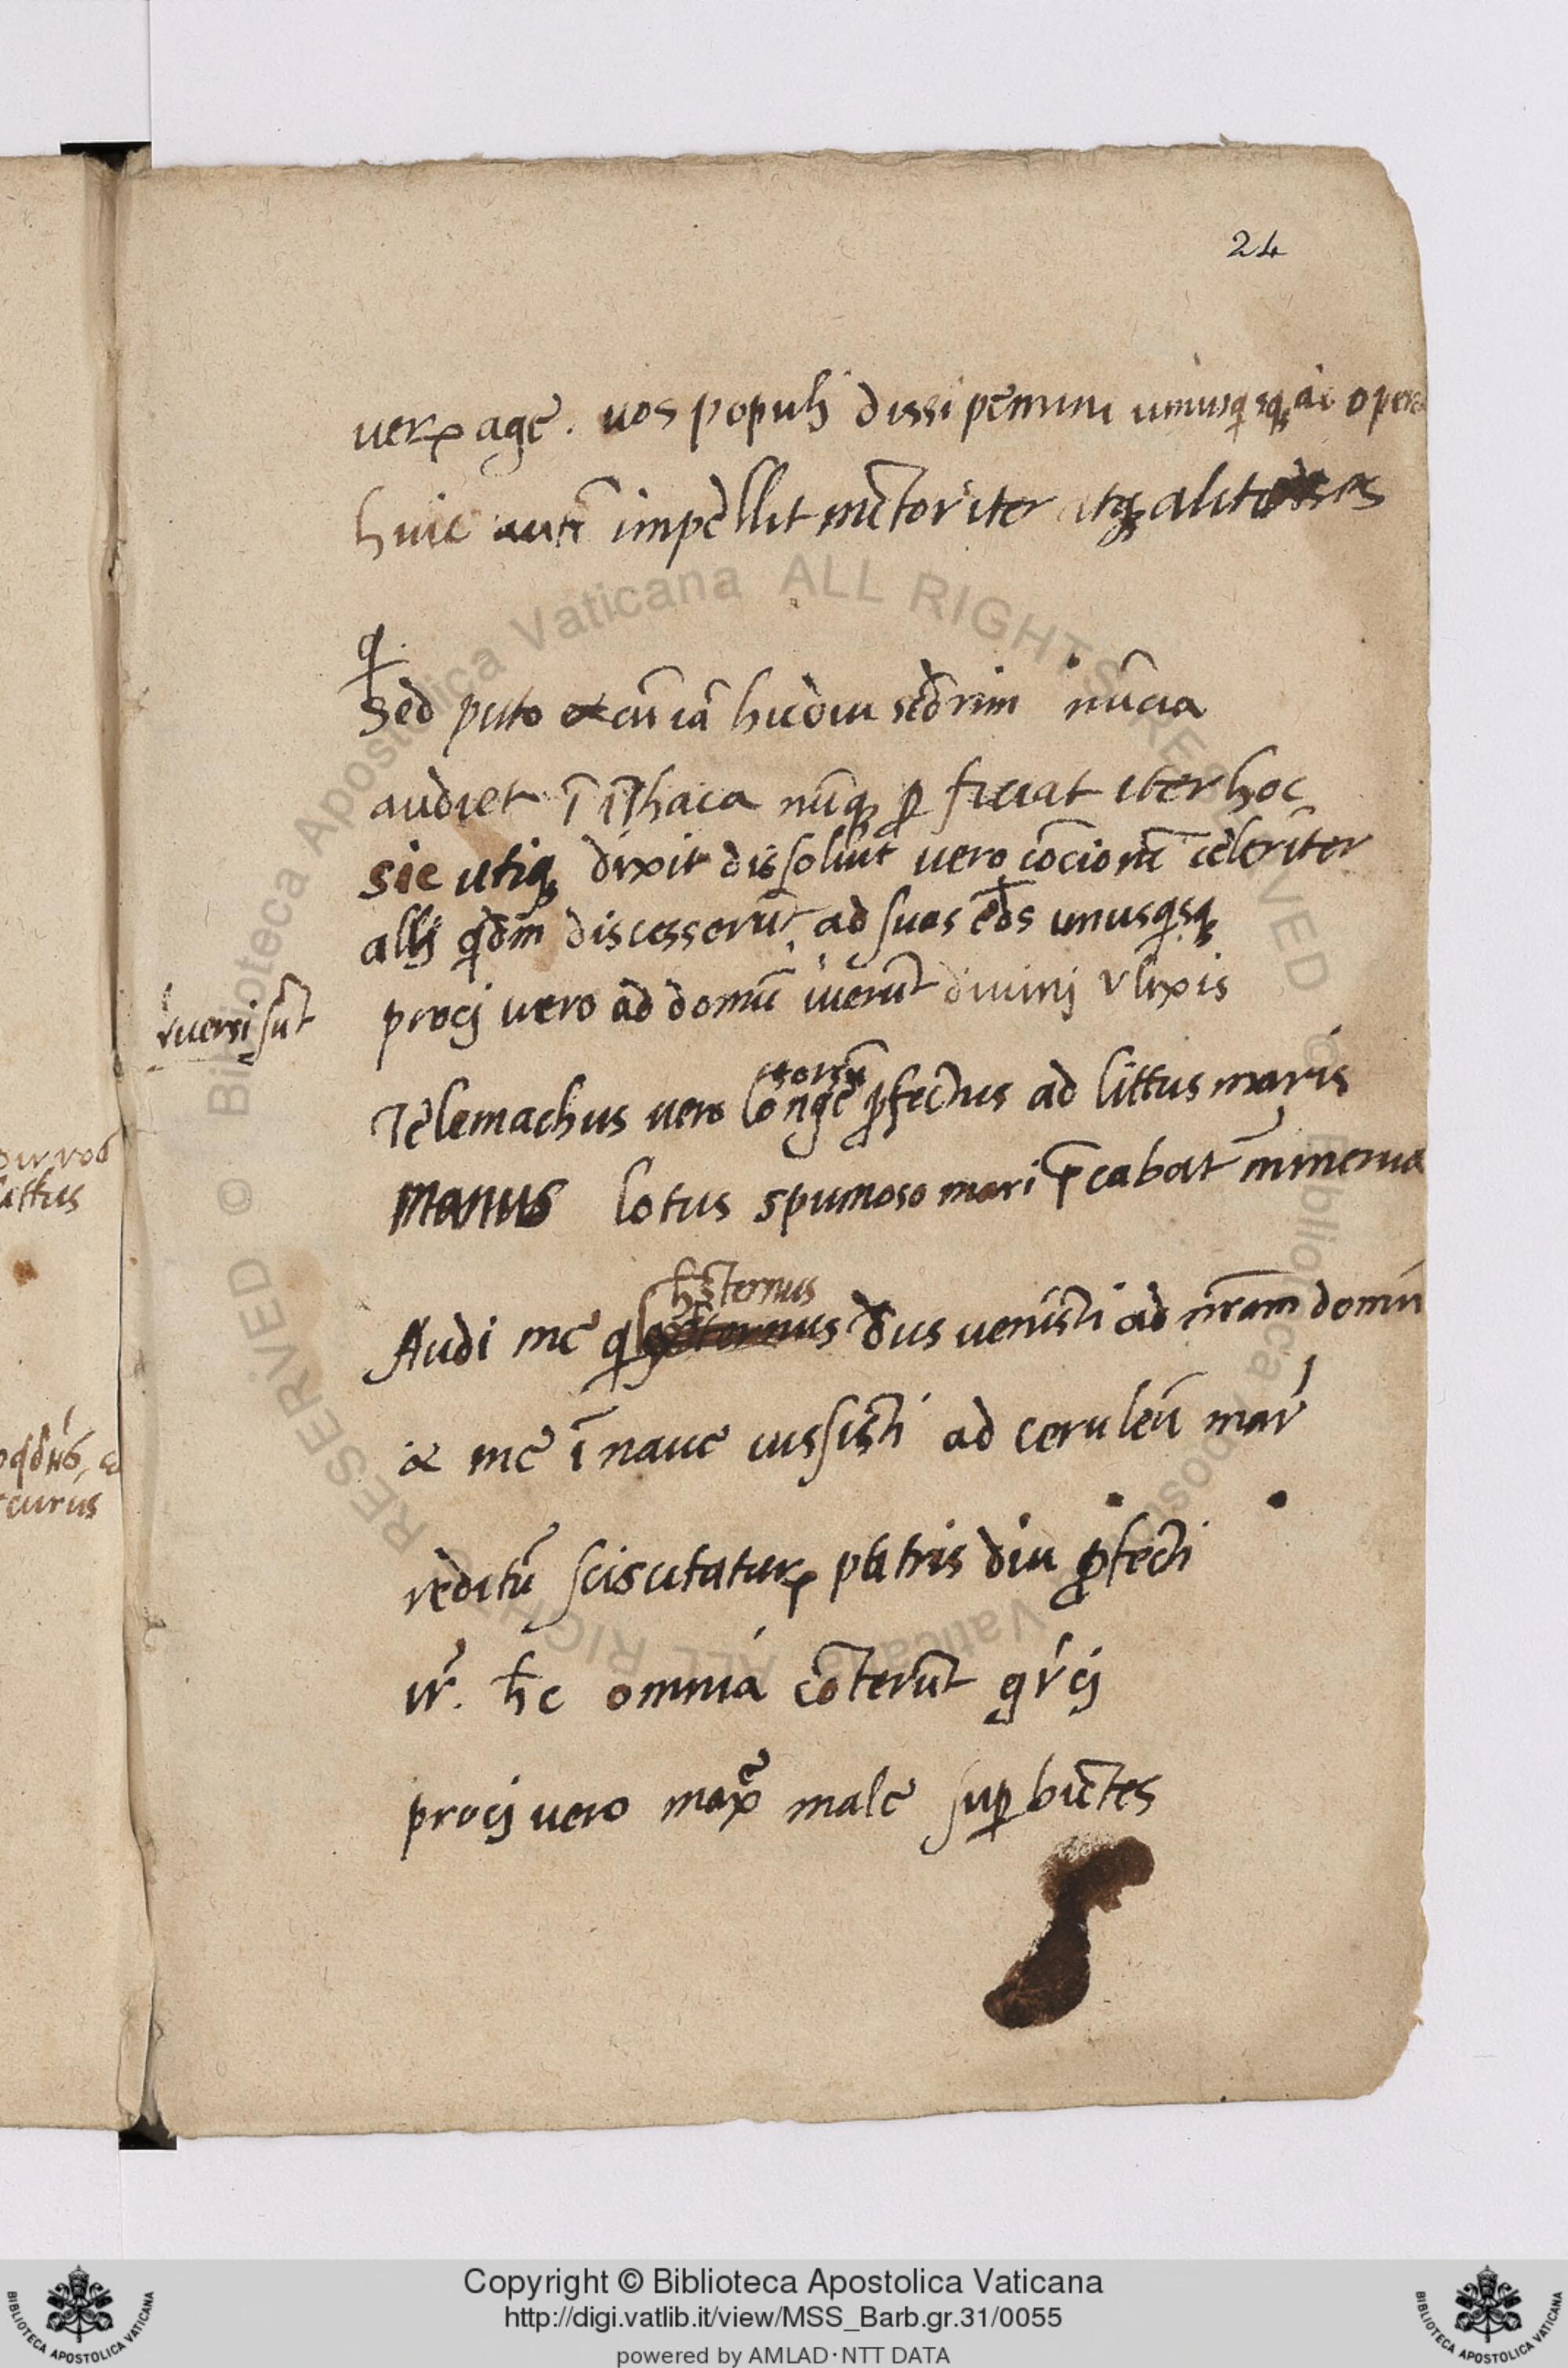 24
uerx age. uos populj dissipemini unusqsq ad opera
huic autē impellit mētor iter itqȝ alit
q.
Sed puto & cū iā hic diu sedrim nūcia
audiet ī ithaca nūq pficiat iter hoc
sic utiq dixit dissoluit vero cōcionē celeriter
allij qdm discesserūt ad suas eds unusqsq
procj vero ad domū iuerūt diuinj vlixis
rversi sūt
seorsū
Telemachus vero longe pfectus ad littus maris
manus lotus spumoso mari pcabat minerua
hesternus
Audi me q deus uenisti ad nram domū
& me ī naue iussisti ad ceruleū mar
reditū sciscitatur patris diu pfecti
ir. hc omnia cōterūt grcj
procj vero maxe male supbiētes
dur vos
littus
curus
Copyright © Biblioteca Apostolica Vaticana
http://digi.vatlib.it/view/MSS_Barb.gr.31/0055
powered by AMLAD·NTT DATA
BIBLIOTECA APOSTOLICA VATICANA
BIBLIOTECA APOSTOLICA VATICANA
© Biblioteca Apostolica Vaticana ALL RIGHTS RESERVED
© Biblioteca Apostolica Vaticana ALL RIGHTS RESERVED